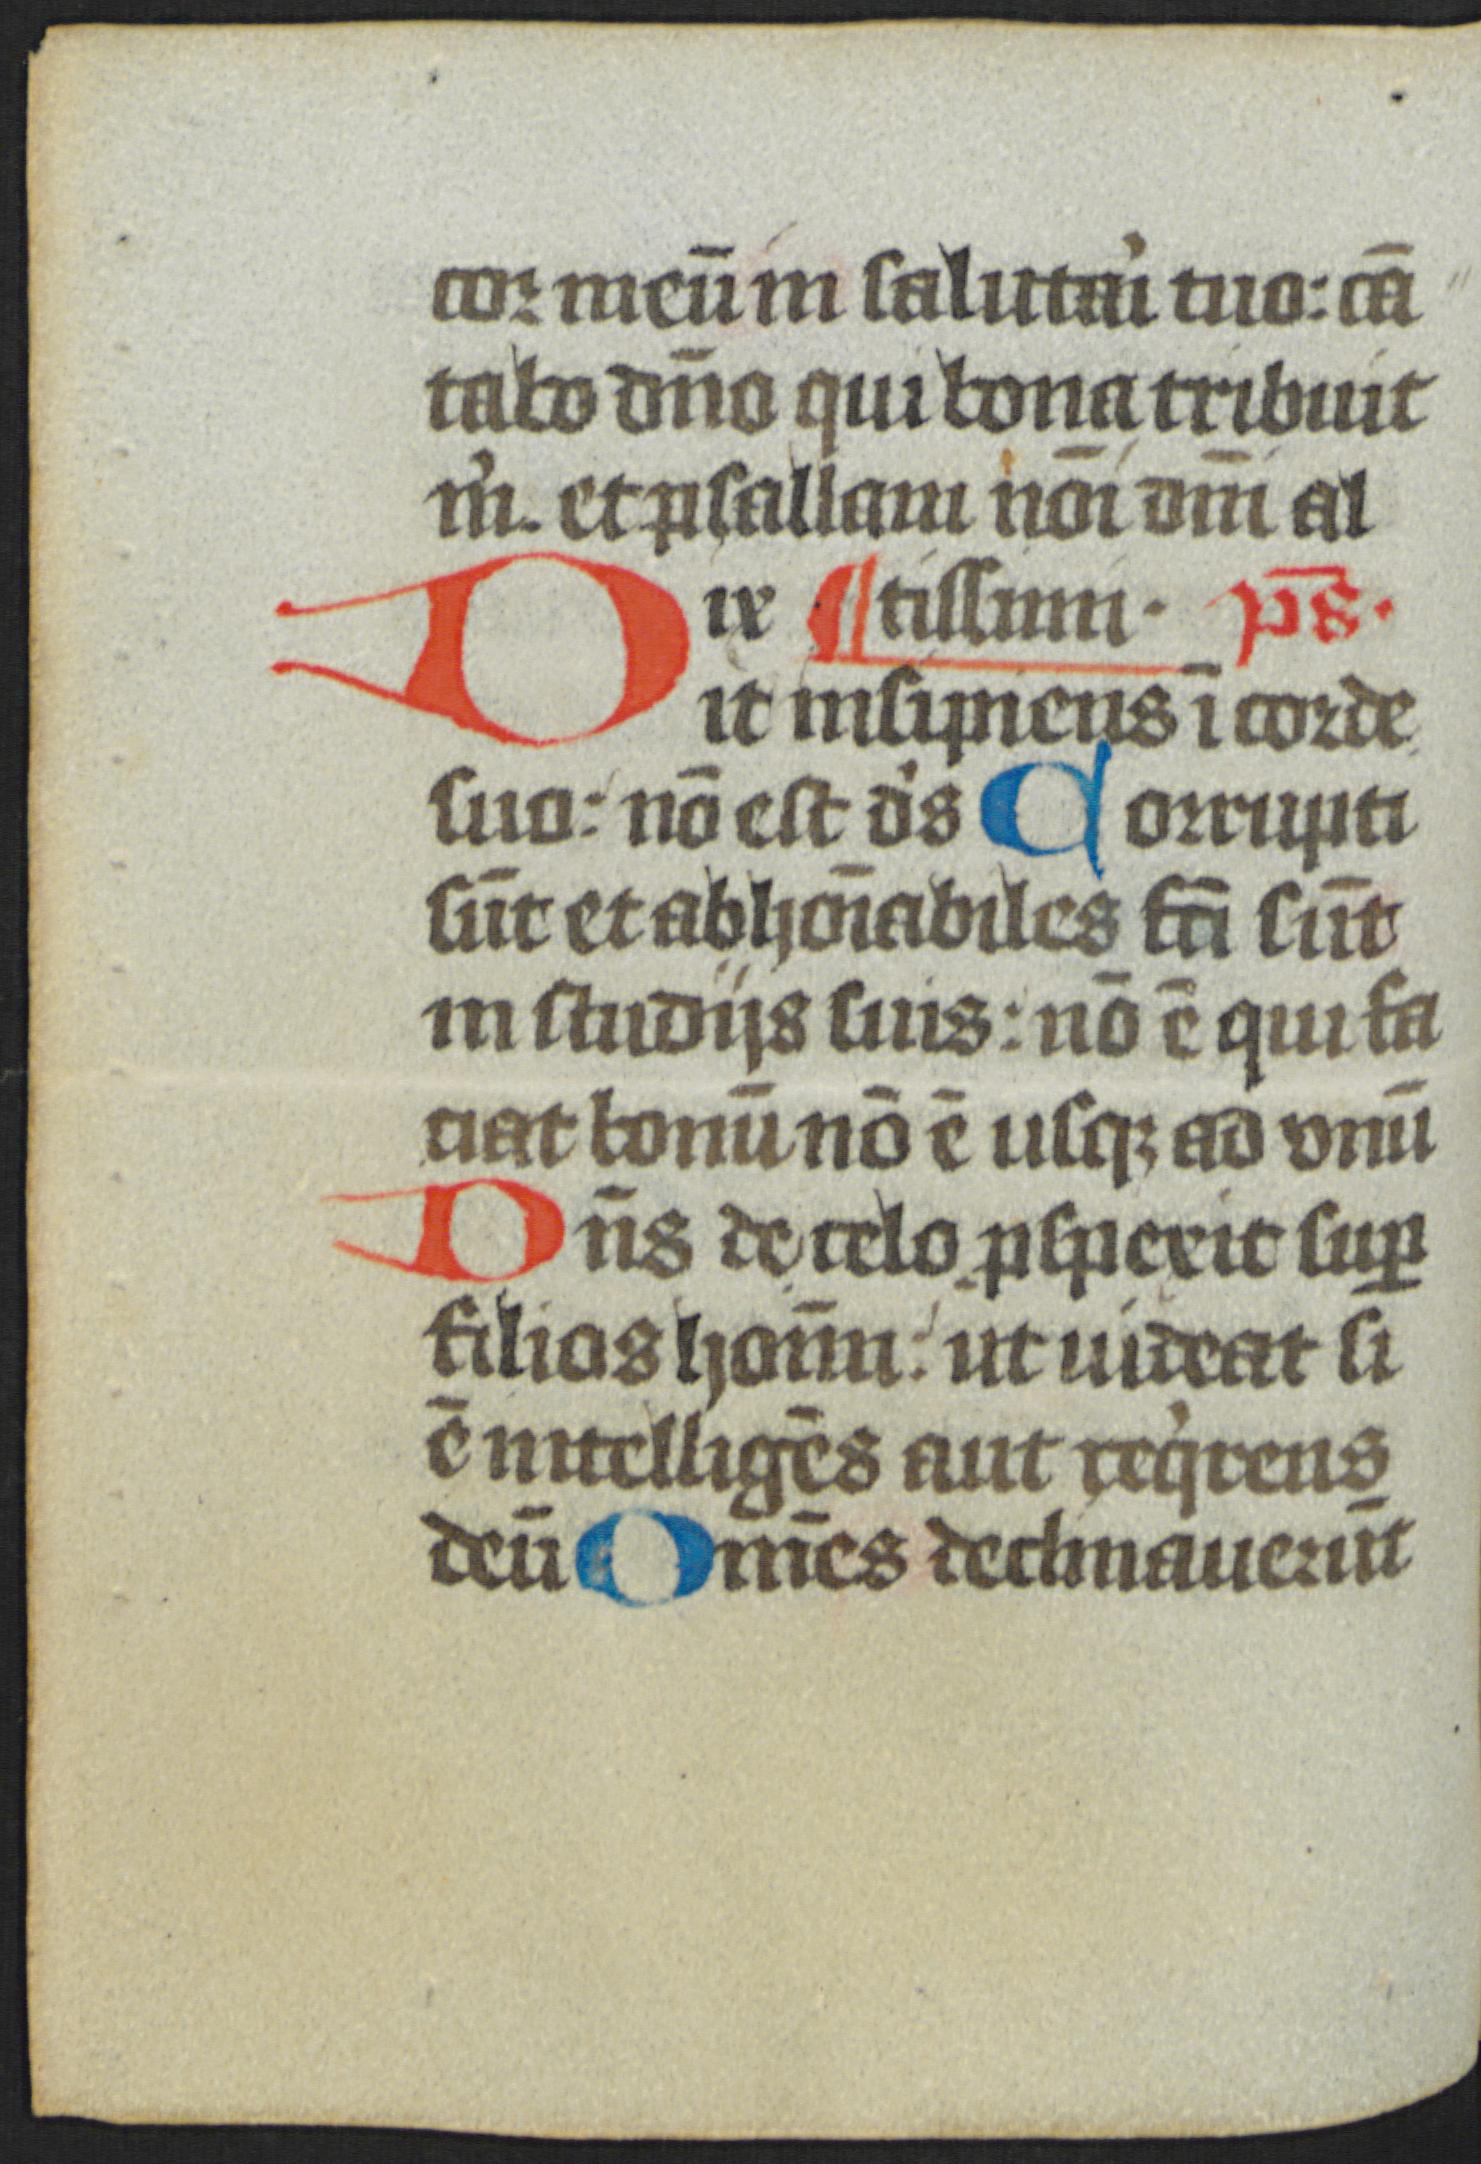 cor meū in salutaı̓ tuo: cā
tabo dn̄o qui bona tribuit
m̓. et psallam nōı dn̄ı al
Dix ¶ tissimi. ps̄.
it insipiens ī corde
suo: nō est d̓s Corrupti
sūt et abhoīabiles fc̄ı sūt
in studijs suis: nō ē qui fa
ciat bonū nō ē usqꝫ ad vnū
Dn̄s de celo ꝓspexit suꝑ
filios hoīm: ut uideat si
ē intelligēs aut req̓rens
deū Om̄es declinauerūt